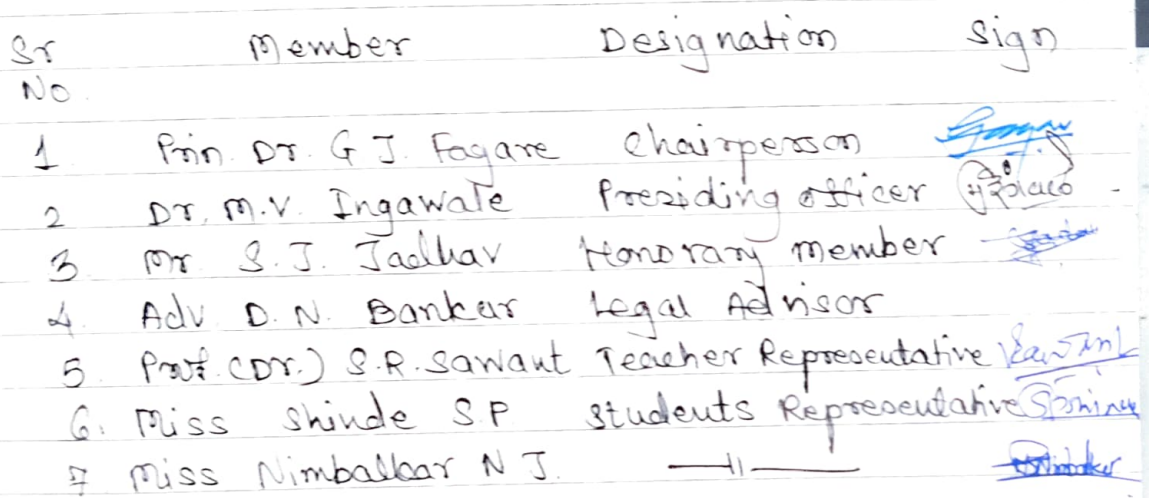 Sr Member Designation Sign
No.
1 Prin. Dr. G J. Fagare Chairperson
2 Dr. M.V. Ingawale Presiding officer
3 Mr S.J. Jadhav Honorary member
4. Adv D. N. Bankar Legal Advisor
5 Prof. (Dr.) S.R. Sawant Teacher Representative
6. Miss Shinde S.P Students Representative
7 Miss Nimbalkar N J. —11—